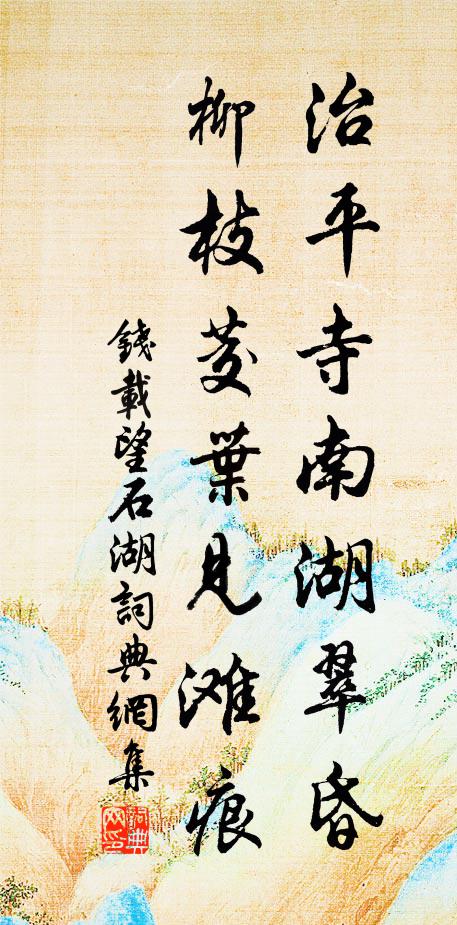 治平寺南湖翠昏
柳枝茭葉見滩痕
錢載望石湖詞典網集
詞典网印